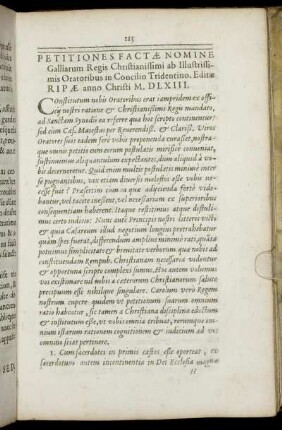 225
PETITIONES FACTÆ NOMINE
Galliarum Regis Christianissimi ab Illustrissi-
mis Oratoribus in Concilio Tridentino. Editæ
RIPÆ anno Christi M. DLXIII.
CONstitutum nobis Oratoribus erat iampridem ex offi-
cij nostri ratione & Christianissimi Regis mandato,
ad Sanctam Synodū ea referre quæ hoc scripto continentur:
sed cùm Cæs. Maiestas per Reuerendiss. & Clariss. Viros
Oratores suos eadem ferè vobis proponenda curasset, nostra-
que omnia petitis cum eorum postulatis mirificè conueniat,
sustinuimus aliquantulum expectantes, dum aliquid à vo-
bis decerneretur. Quid enim multis postulatis nominum in-
ter se pugnantibus, vos etiam diuersis molestos esse vobis ne-
cesse fuit? Præsertim cum ea quæ adijcienda fortè vide-
bantur, vel tacitè inessent, vel necessariam ex superioribus
consequentiam haberent. Itaque restitimus atque distuli-
mus certo iudicio: Nunc autē Principis nostri literis victi
& quia Cæsarum illud negotium longius protrahebatur
quàm spes fuerat, differendum amplius minimè rati, quàta
potuimus simplicitate & breuitate verborum quæ nobis ad
constituendam Rempub. Christianam necessaria videntur
& opportuna scripto complexi sumus. Hoc autem volumus
vos existimare vel nobis a cæterorum Christianorum salute
præcipuum esse nihilque singulare. Carolum verò Regem
nostrum cupere quidem vt petitionum suarum omnium
ratio habeatur, sit tamen a Christiana disciplina edoctum
& institutum esse, vt vobis omnia tribuat, rerumque om-
nium istarum rationem cognitionem & iudicium ad vos
omnino sciat pertinere.
1. Cum sacerdotes in primis castos esse oporteat, &
sacerdotum autem incontinentia in Dei Ecclesia magna